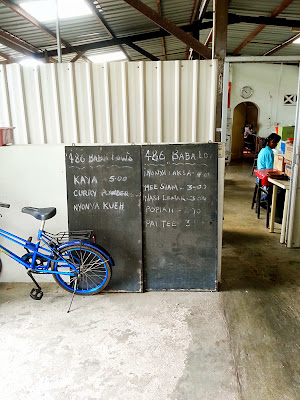 486 BABA LOWS
KAYA - 5.00
CURRY POWDER
NYONYA KUEH
486 BABA LO
NYONYA LAKSA
MEE SIAM - 3.00
NASI LEMAK - 3.00
POPIAH
PAI TEE 3